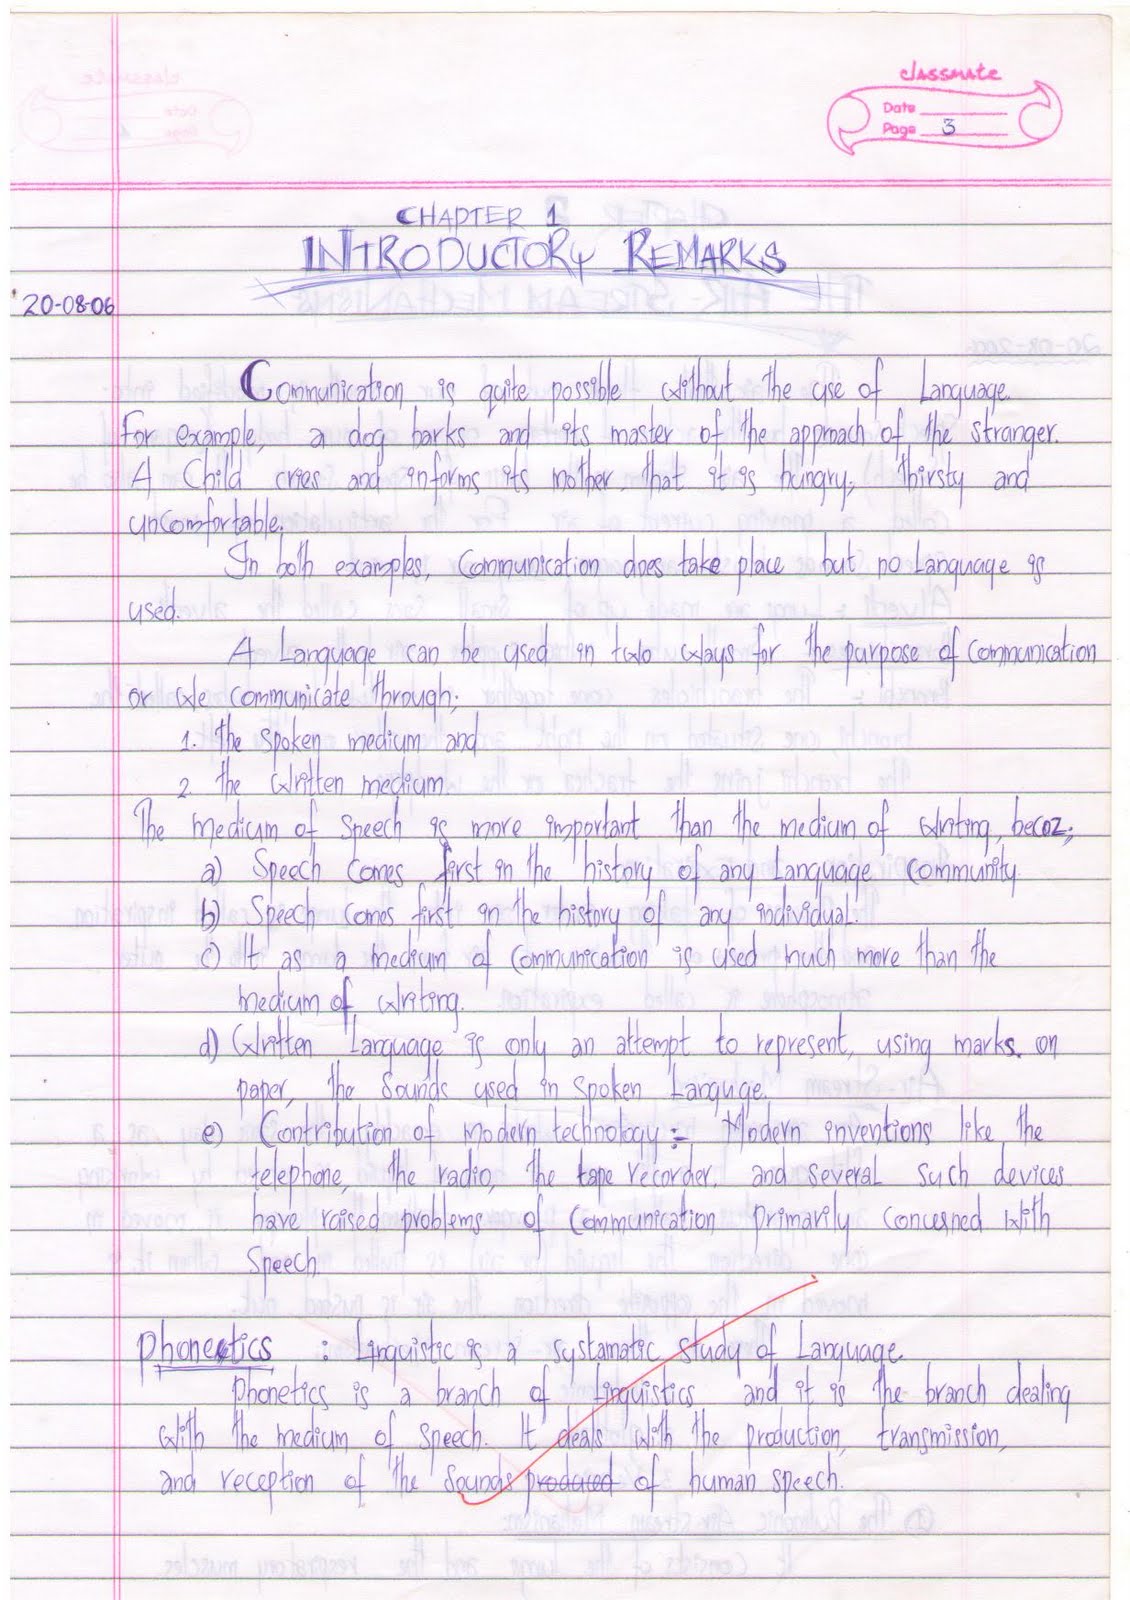 classmate
Date
Page 3
CHAPTER 1
INTRODUCTORY REMARKS
20-08-06
Communication is quite possible without the use of Language.
For example, a dog barks and its master of the approach of the stranger.
A Child cries and informs its mother that it is hungry, thirsty and
uncomfortable.
In both examples, Communication does take place but no Language is
used.
A Language can be used in two ways for the purpose of Communication
or we communicate through;
1. the spoken medium and
2. the written medium.
The medium of Speech is more important than the medium of writing, becoz;
a) Speech Comes first in the history of any Language Community.
b) Speech Comes first in the history of any individual.
c) It as a medium of Communication is used much more than the
medium of writing.
d) Written Language is only an attempt to represent, using marks on
paper, the Sounds used in Spoken Languge.
e) Contribution of Modern technology :- Modern inventions like the
telephone, the radio, the tape recorder, and several such devices
have raised problems of Communication primarily Concerned with
Speech
Phonetics : Linguistic is a systamatic study of Language.
Phonetics is a branch of linguistics and it is the branch dealing
with the medium of speech. It deals with the production, transmission,
and reception of the Sounds produced of human speech.